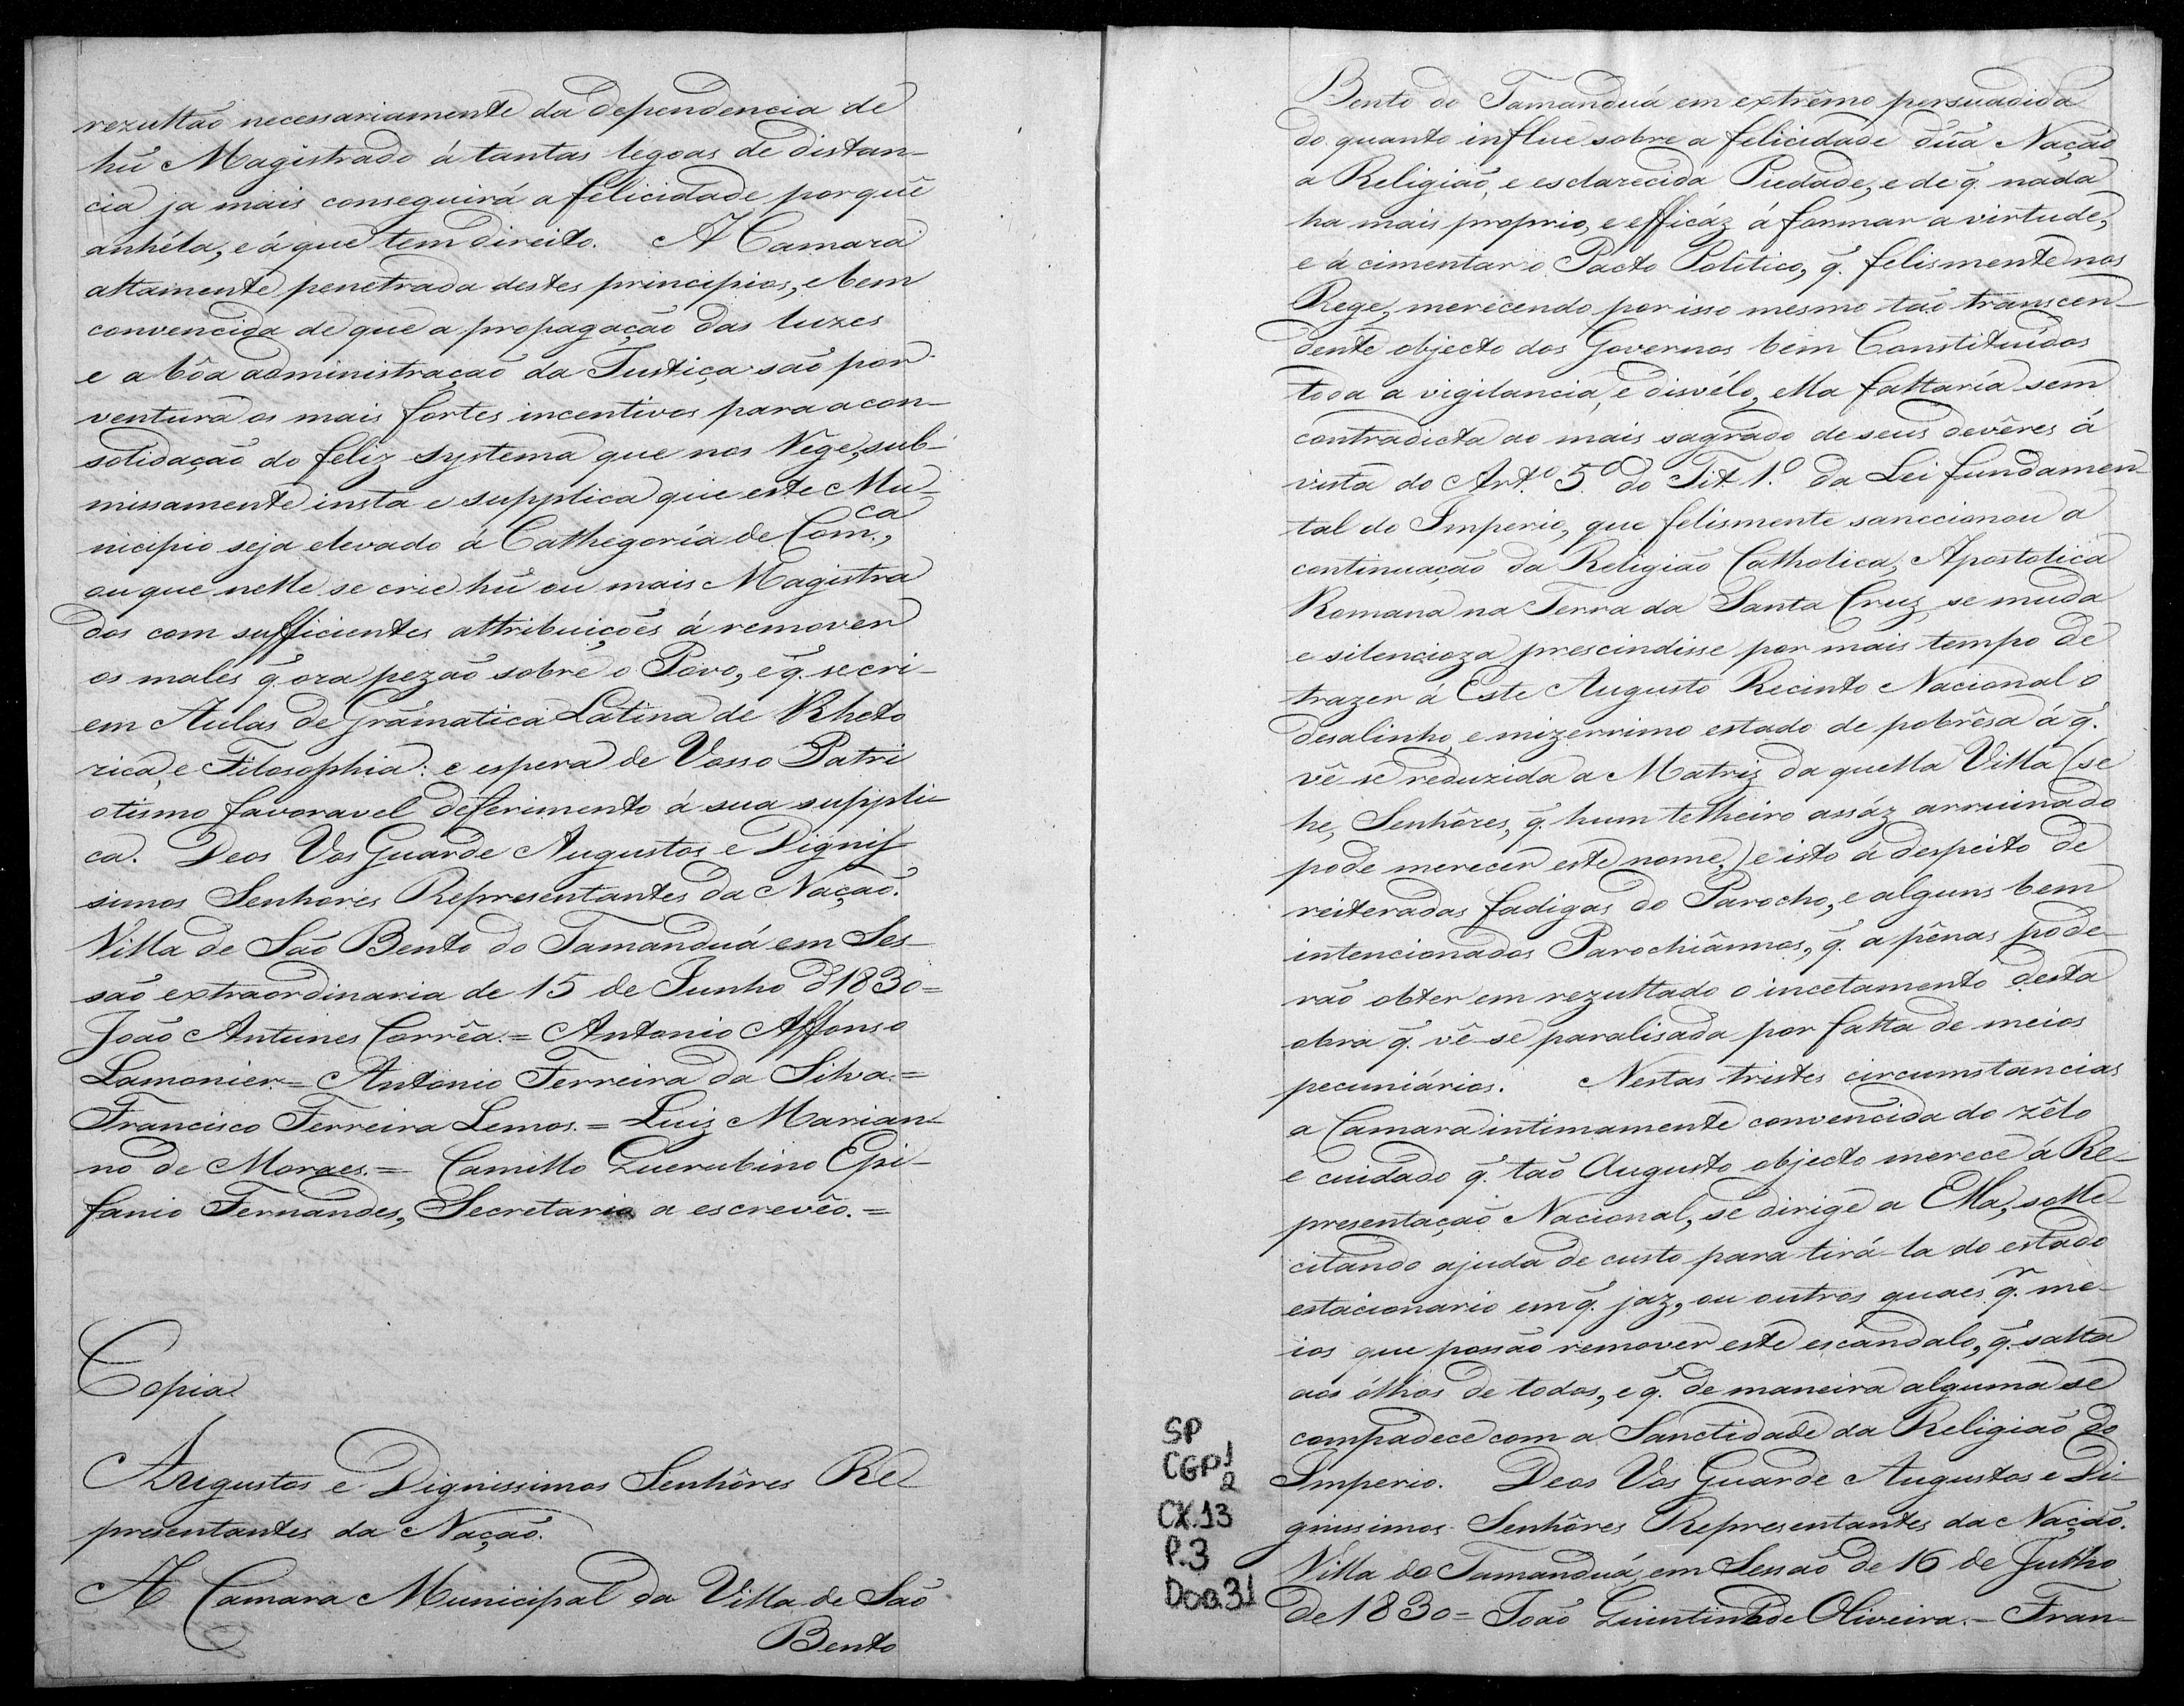 rezultão necessariamente da dependencia de
hũ Magistrado á tantas legoas de distan-
cia ja mais conseguirá a felicidade porquê
anhéla, e á que tem direito. A Camara
altamente penetrada destes principios, e bem
convencida de que a propagação das luzes
e a bôa administração da Justiça são por
ventura os mais fortes incentivos para a con-
solidação do feliz systema que nos Rege, sub-
missamente insta e supplica que este Mu-
nicipio seja elevado á Cathegoría de Com.ca,
ou que nelle se crie hũ ou mais Magistra
dos com sufficientes attribuições á remover
os males q̃ ora pezão sobre o Povo, e q̃. se cri-
em Aulas de Grãmatica Latina de Rheto
rica, e Filosophia: e espera de Vosso Patri
otismo favoravel defferimento á sua suppli-
ca. Deos Vos Guarde Augustos e Dignis
simos Senhores Representantes da Nação.
Villa de São Bento do Tamanduá em Ses-
são extraordinaria de 15 de Junho d'1830=
João Antunes Corrêa.= Antonio Affonso
Lamonier.= Antonio Ferreira da Silva.=
Francisco Ferreira Lemos.= Luiz Marian-
no de Moraes.= Camillo Querubino Epi-
fanio Fernandes, Secretario a escrevêo.=
Copia
Augustos e Dignissimos Senhôres Re-
presentantes da Nação.
A Camara Municipal da Villa de São
Bento
Bento do Tamanduá em extrêmo persuadida
do quanto influe sobre a felicidade dũa Nação
a Religião, e esclarecida Piedade, e de q̃. nada
ha mais proprio, e efficáz á formar a virtude,
e á cimentar o Pacto Politico, q̃. felismente nos
Rege, merecendo por isso mesmo tão transcen-
dente objecto dos Governos bem Constituídos
toda a vigilancia, e disvélo, ella faltaría sem
contradicta ao mais sagrado de seus devêres á
vista do Art.º 5.º do Tit. 1.º da Lei fundamen-
tal do Imperio, que felismente sanccionou a
continuação da Religião Catholica, Apostolica
Romana na Terra da Santa Cruz, se muda
e silencioza prescindisse por mais tempo de
trazer á Este Augusto Recinto Nacional o
desalinho, e mizerrimo estado de pobrêsa á q̃.
vê-se reduzida a Matriz daquella Villa (se
he, Senhôres, q̃. hum telheiro assáz arruinado
pode merecer este nome,) e isto á despeito de
reiteradas fadigas do Parocho, e alguns bem
intencionados Parochiânnos, q̃. a pênas pode-
rão obter em rezultado o incetamento desta
obra q̃. vê-se paralisada por falta de meios
pecuniários. Nestas tristes circumstancias
a Camara intimamente convencida do zêlo
e cuidado q̃. tão Augusto objecto merece á Re-
presentação Nacional, se dirige a Ella, solle-
citando ajuda de custo para tirá-la do estado
estacionario em q̃. jaz, ou outros quaes q̃.r me-
ios que possão remover este escandalo, q̃. salta
aos ólhos de todos, e q̃. de maneira alguma se
compadece com a Sanctidade da Religião do
Imperio. Deos Vos Guarde Augustos e Di-
gnissimos Senhôres Representantes da Nação.
Villa do Tamanduá, em Sessão de 16 de Julho
de 1830= João Quintino de Oliveira.- Fran-
SP
CGP1
2
CX.13
P.3
Doc.31